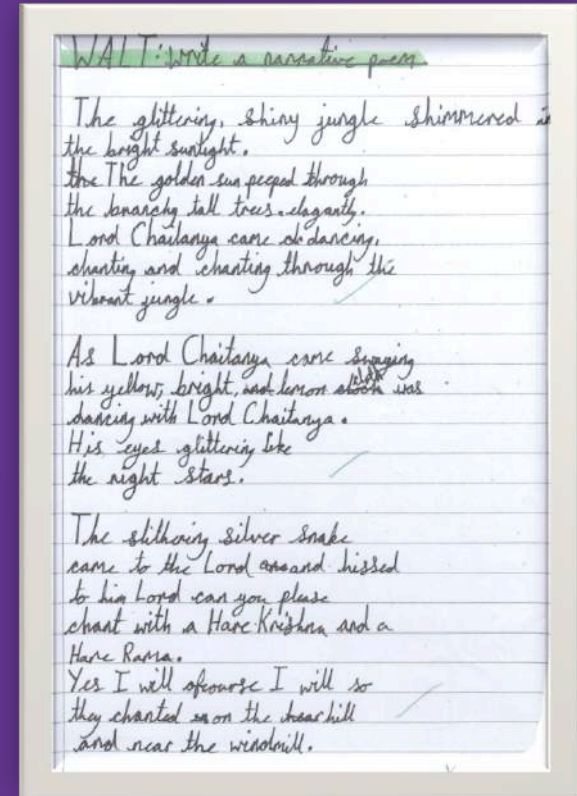 WALT: write a narrative poem.
The glittering, shiny jungle shimmered in
the bright suntight.
the The golden sun peeped through
the branchy tall trees. elagantly.
Lord Chaitanya came dancing,
chanting and chanting through the
vibrant jungle.
As Lord Chaitanya came swaying
his yellow, bright, and lemon cloth was
dancing with Lord Chaitanya.
His eyes glittering like
the night stars.
The slithering silver snake
came to the Lord and hissed
to him Lord can you please
chant with a Hare Krishna and a
Hare Rama.
Yes I will ofcourse I will so
they chanted on the hill
and near the windmill.